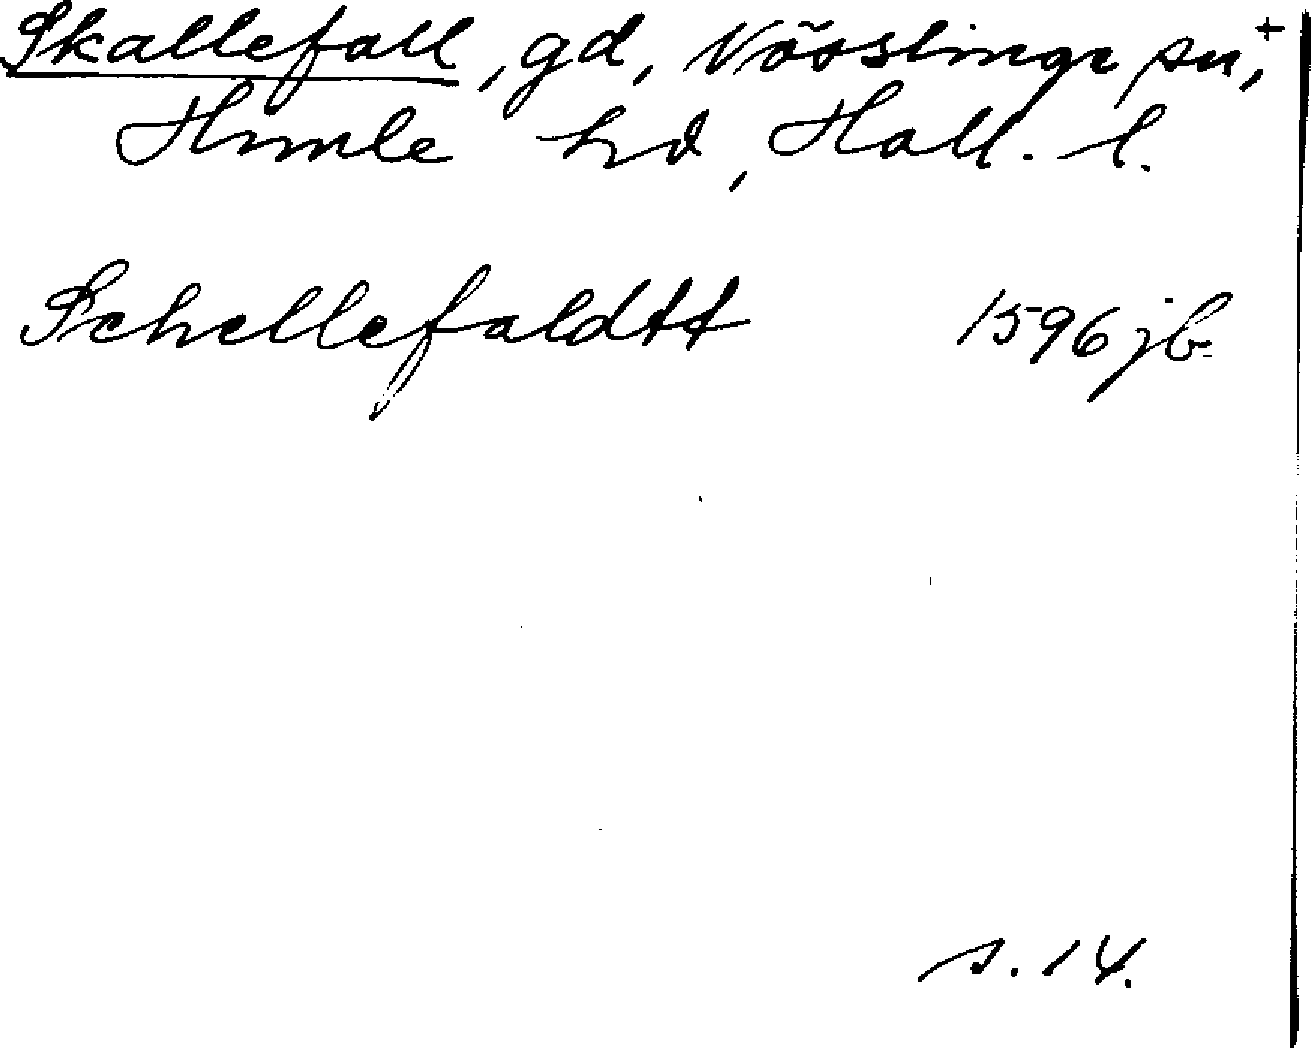 Skallefall, gd, Nösslinge sn,+
Himle hd, Hall. l.
Schellefaldtt 1596 jb.
s. 14.